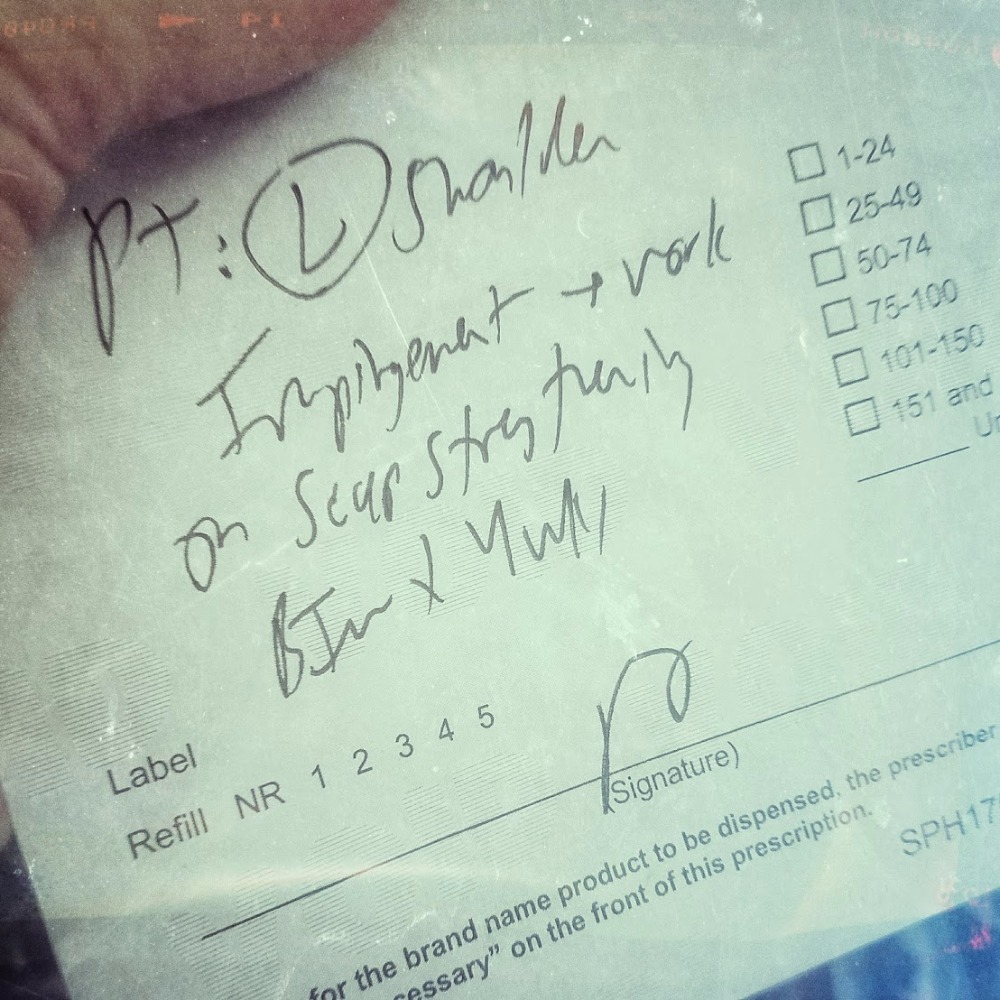 PT: L Shoulder
Impingement → work
on Scap Streng training
BIW x 4wks
1-24
25-49
50-74
75-100
101-150
151 and
Un
Label
Refill NR 1 2 3 4 5
(Signature)
for the brand name product to be dispensed, the prescriber
cessary" on the front of this prescription.
SPH17